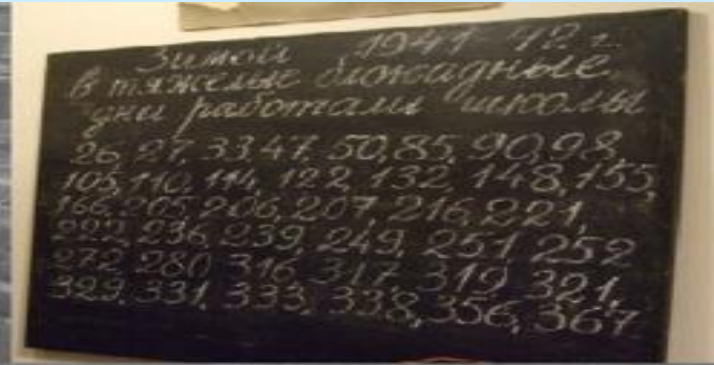 Зимой 1941-42 г.
В тяжелые блокадные
дни работали школы
26, 27, 33, 47, 50, 85, 90, 98,
105, 110, 114, 122, 132, 148, 155,
166, 205, 206, 207, 216, 221,
222, 236, 239, 249, 251, 252
272, 280, 316, 317, 319, 321,
329, 331, 333, 338, 356, 367